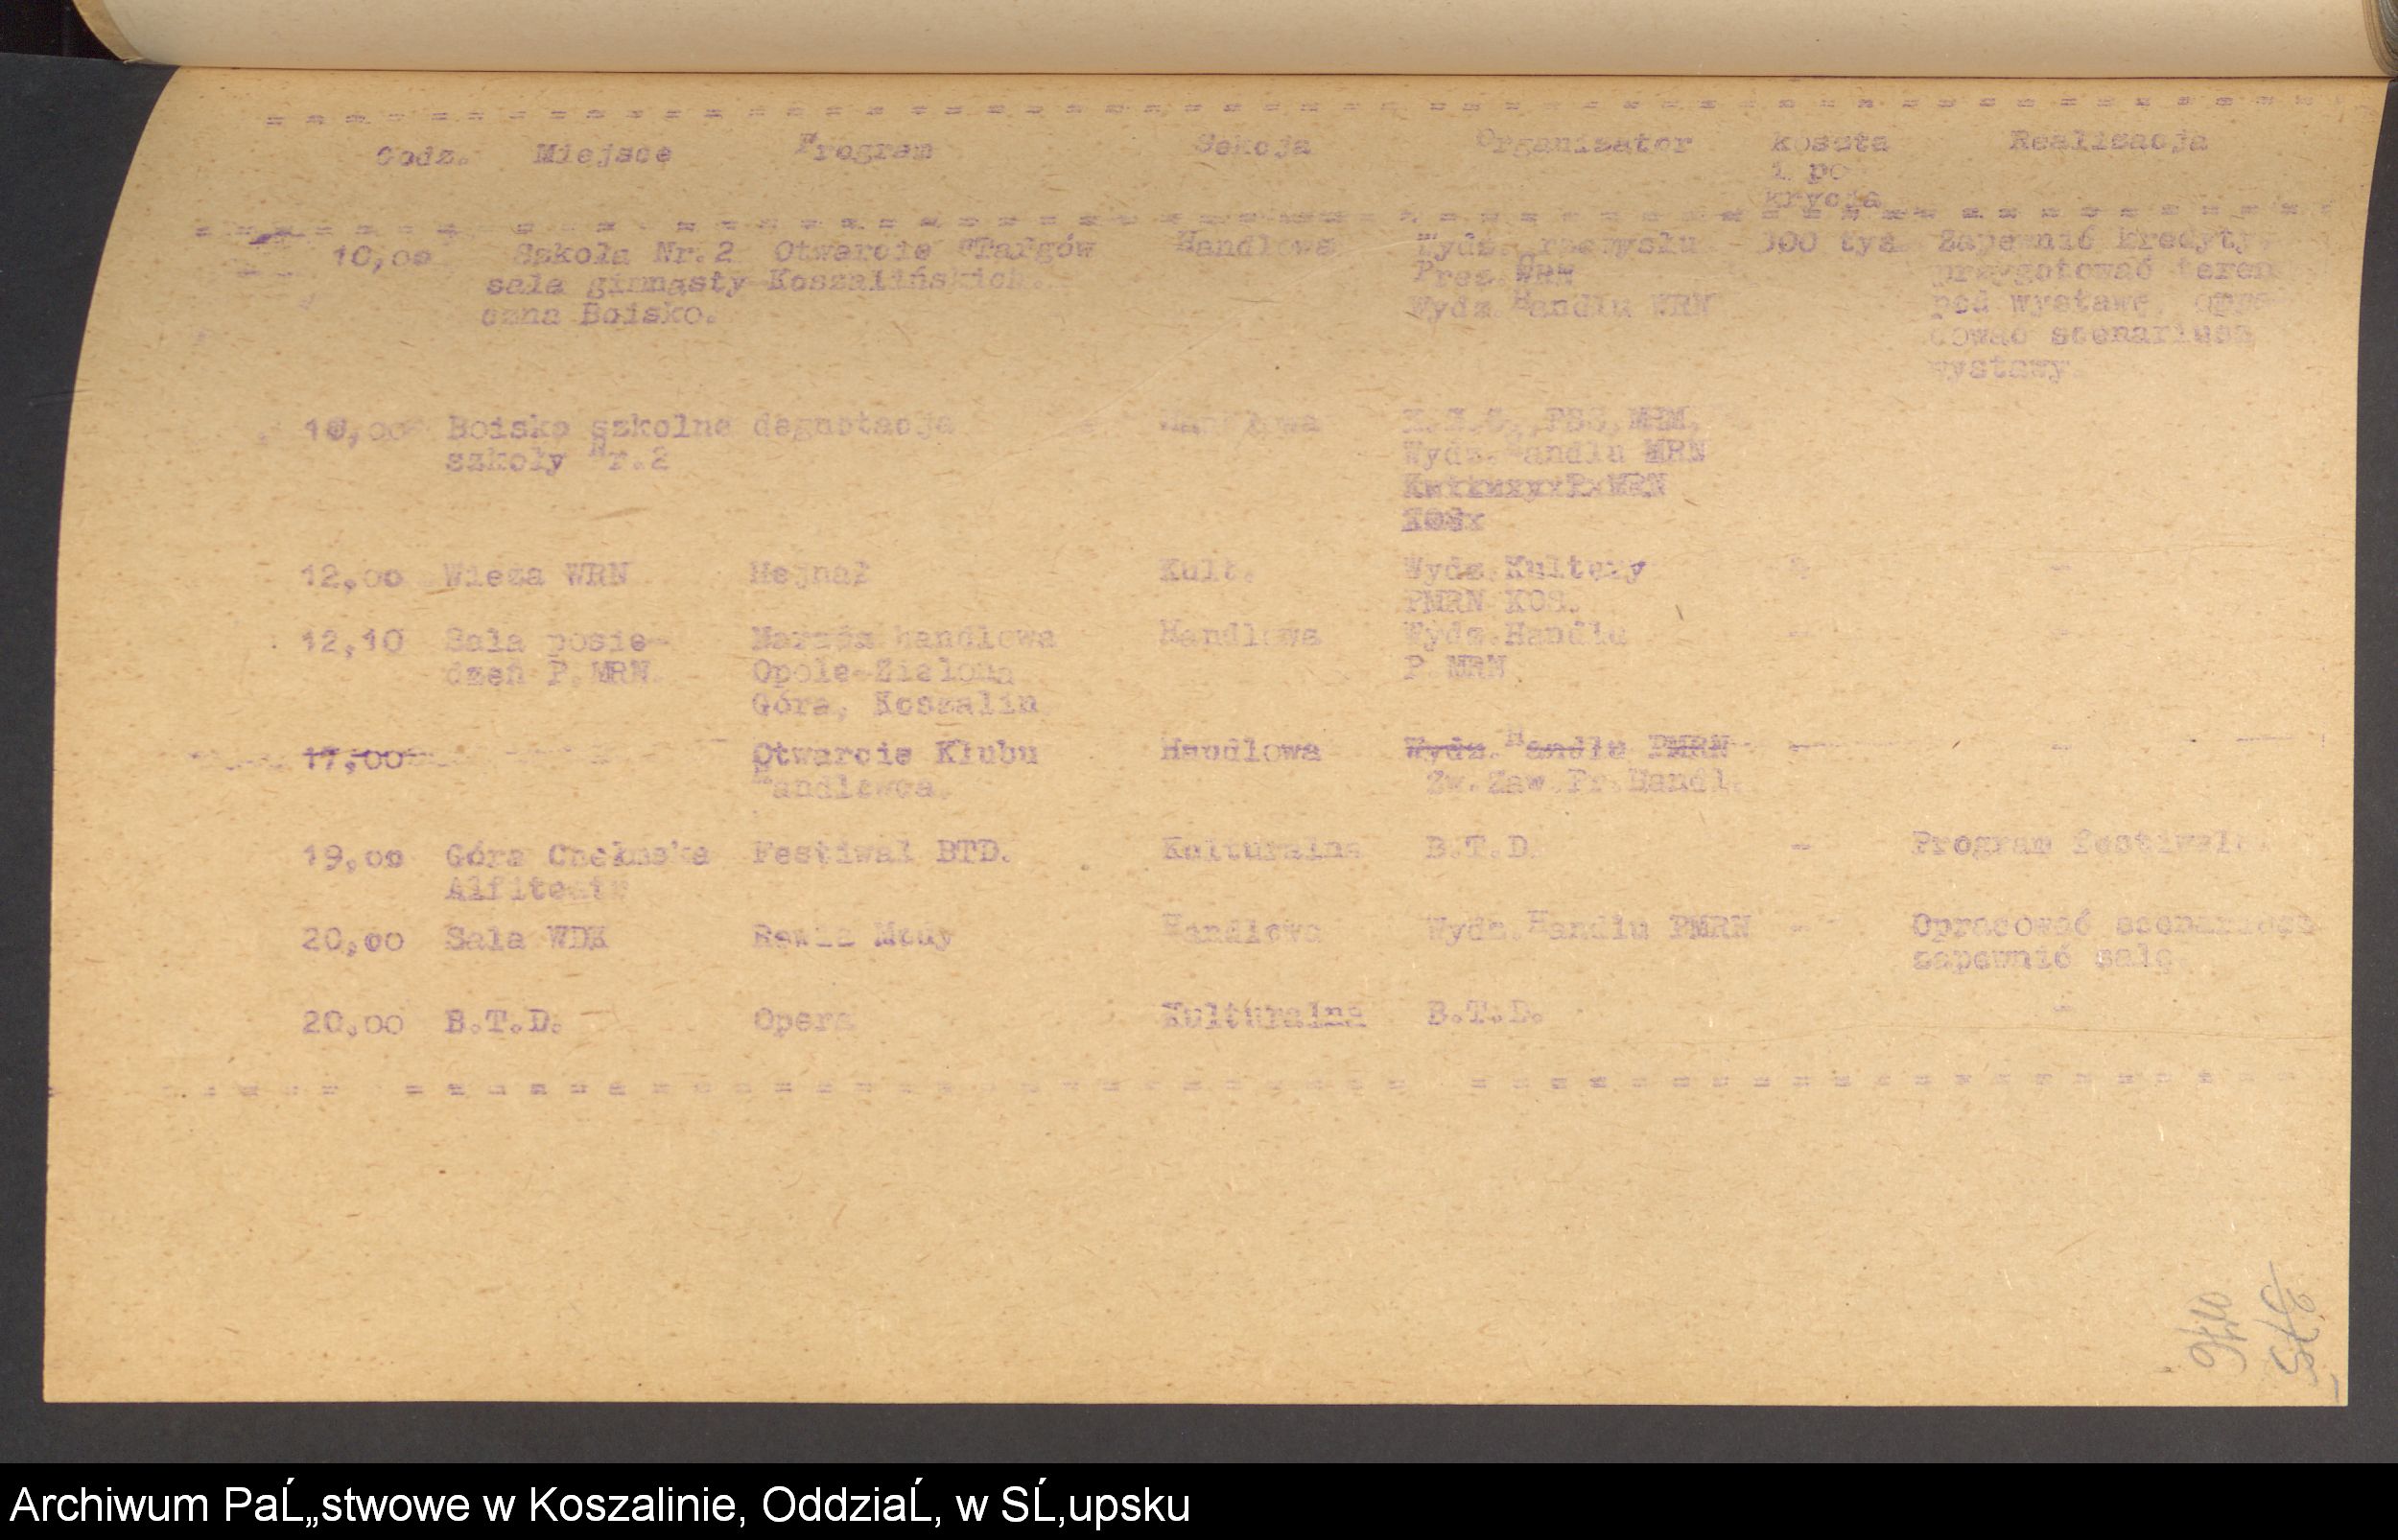 Godz. Miejsce Program Sekcja Organizator koszta Realizacja
i po
krycia
10,00 Szkoła Nr.2 Otwarcie Targów Handlowa Wydz. Przemysłu 300 tys Zapewnić kredyty,
sala gimnasty Koszalińskich. Prez. WRN przygotować teren
czna Boisko. Wydz. Handlu WRN pod wystawę, opra
cować scenariusz
wystawy.
10,00 Boisko szkolne degustacja Handlowa PSS, MHM,
szkoły Nr.2 Wydz. Handlu MRN
P.MRN
KOS
12,00 Wieża WRN Hejnał Kult. Wydz. Kultury - -
PMRN KOS.
12,10 Sala posie- handlowa Handlowa Wydz. Handlu - -
dzeń P.MRN. Opole-Zielona P MRN
Góra, Koszalin
17,00 Otwarcie Klubu Handlowa Wydz. Handlu PMRN - -
Handlowca. Zw.Zaw.Pr.Handl.
19,00 Góra Chełmska Festiwal BTD. Kulturalna B.T.D. - Program festiwalu
Alfiteatr
20,00 Sala WDK Rewia Mody Handlowa Wydz. Handlu PMRN - Opracować scenariusz
zapewnić salę
20,00 B.T.D. Opera Kulturalna B.T.D. -
Archiwum PaĹ„stwowe w Koszalinie, OddziaĹ‚ w SĹ‚upsku